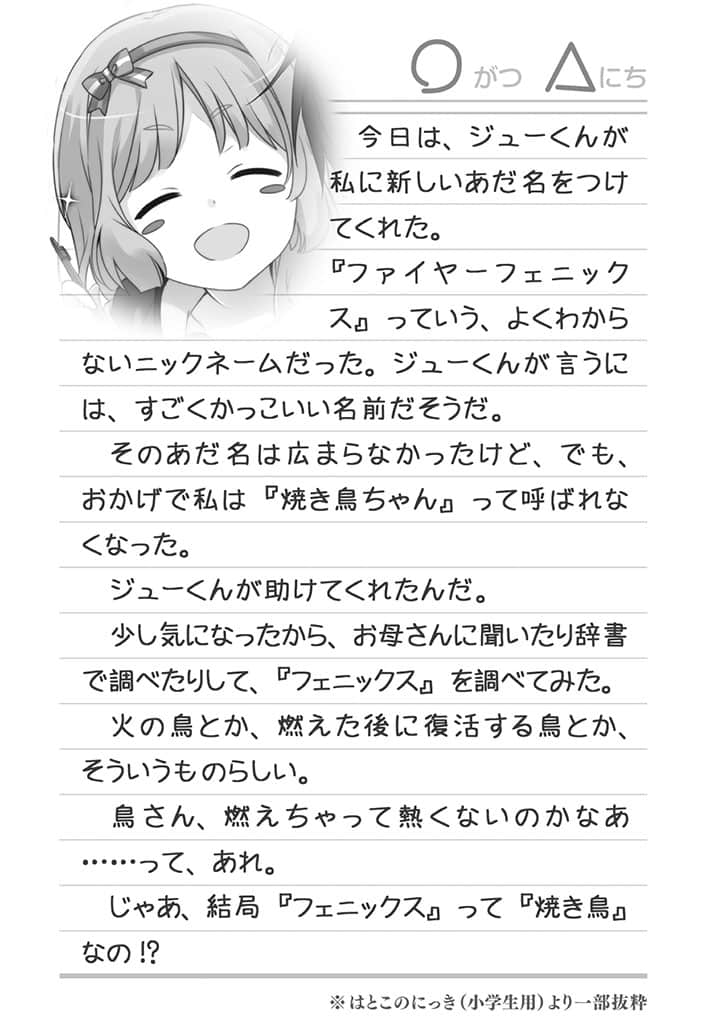 ○がつ △にち
今日は、ジューくんが
私に新しいあだ名をつけ
てくれた。
『ファイヤーフェニック
ス』っていう、よくわから
ないニックネームだった。ジューくんが言うに
は、すごくかっこいい名前だそうだ。
そのあだ名は広まらなかったけど、でも、
おかげで私は『焼き鳥ちゃん』って呼ばれな
くなった。
ジューくんが助けてくれたんだ。
少し気になったから、お母さんに聞いたり辞書
で調べたりして、『フェニックス』を調べてみた。
火の鳥とか、燃えた後に復活する鳥とか、
そういうものらしい。
鳥さん、燃えちゃって熱くないのかなあ
……って、あれ。
じゃあ、結局『フェニックス』って『焼き鳥』
なの!?
※はとこのにっき(小学生用)より一部抜粋